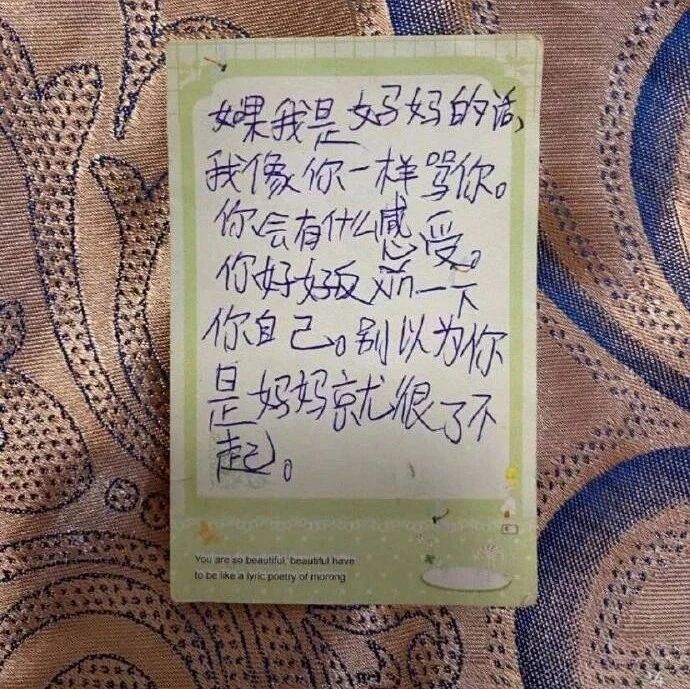 如果我是妈妈的话,
我像你一样骂你。
你会有什么感受。
你好好反xin一下
你自己。别以为你
是妈妈就很了不
起。
You are so beautiful beautiful have
to be like a lyric poetry of morong